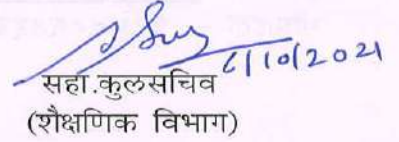 6/10/2021
सहा.कुलसचिव
(शैक्षणिक विभाग)